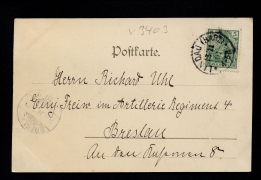 v 3403
Postkarte.
LANDAU
5
Herrn Richard Uhl
Einj. Freiw. im Artillerie Regiment 4
Breslau
An den Kasernen 8.